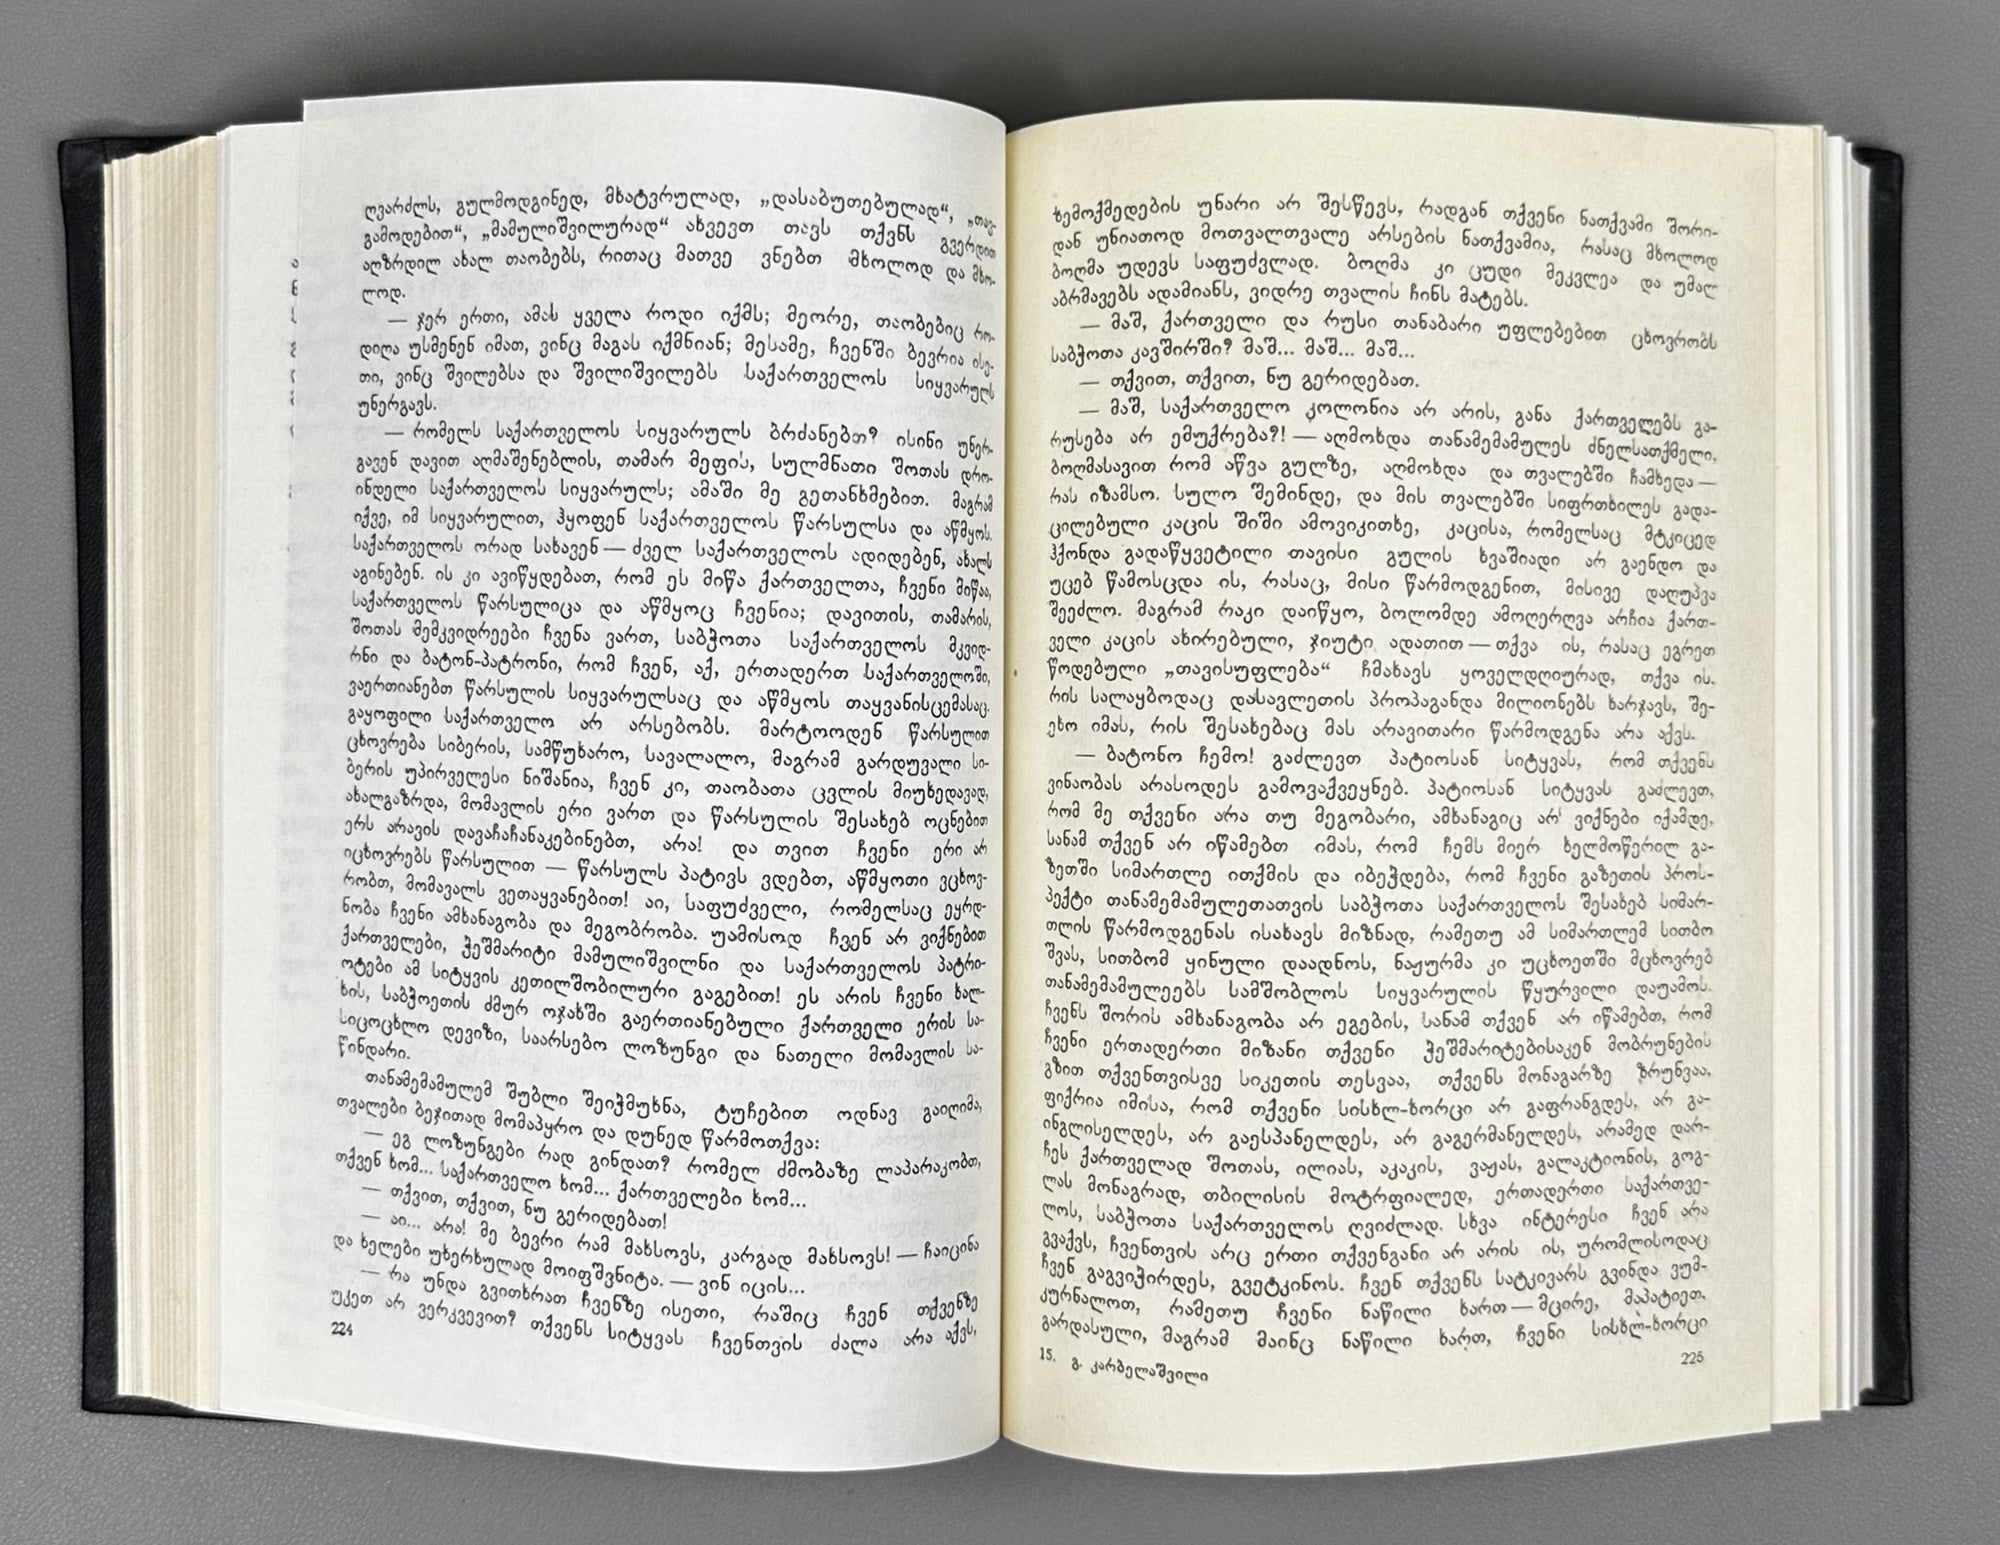 ღვარძლს, გულმოდგინედ, მხატვრულად, „დასაბუთებულად“, „თავ-
გამოდებით“, „მამულიშვილურად“ ახვევთ თავს თქვენს გვერდით
აღზრდილ ახალ თაობებს, რითაც მათვე ვნებთ მხოლოდ და მხო-
ლოდ.
— ჯერ ერთი, ამას ყველა როდი იქმს; მეორე, თაობებიც რო-
დიღა უსმენენ იმათ, ვინც მაგას იქმნიან; მესამე, ჩვენში ბევრია ისე-
თი, ვინც შვილებსა და შვილიშვილებს საქართველოს სიყვარულს
უნერგავს.
— რომელს საქართველოს სიყვარულს ბრძანებთ? ისინი უნერ-
გავენ დავით აღმაშენებლის, თამარ მეფის, სულმნათი შოთას დრო-
ინდელი საქართველოს სიყვარულს; ამაში მე გეთანხმებით. მაგრამ
იქვე, იმ სიყვარულით, ჰყოფენ საქართველოს წარსულსა და აწმყოს.
საქართველოს ორად სახავენ — ძველ საქართველოს ადიდებენ, ახალს
აგინებენ. ის კი ავიწყდებათ, რომ ეს მიწა ქართველთა, ჩვენი მიწაა,
საქართველოს წარსულიცა და აწმყოც ჩვენია; დავითის, თამარის,
შოთას მემკვიდრეები ჩვენა ვართ, საბჭოთა საქართველოს მკვიდ-
რნი და ბატონ-პატრონი, რომ ჩვენ, აქ, ერთადერთ საქართველოში,
ვაერთიანებთ წარსულის სიყვარულსაც და აწმყოს თაყვანისცემასაც.
გაყოფილი საქართველო არ არსებობს. მარტოოდენ წარსულით
ცხოვრება სიბერის, სამწუხარო, სავალალო, მაგრამ გარდუვალი სი-
ბერის უპირველესი ნიშანია, ჩვენ კი, თაობათა ცვლის მიუხედავად,
ახალგაზრდა, მომავლის ერი ვართ და წარსულის შესახებ ოცნებით
ერს არავის დავაჩაჩანაკებინებთ, არა! და თვით ჩვენი ერი არ
იცხოვრებს წარსულით — წარსულს პატივს ვდებთ, აწმყოთი ვცხოვ-
რობთ, მომავალს ვეთაყვანებით! აი, საფუძველი, რომელსაც ეყრდ-
ნობა ჩვენი ამხანაგობა და მეგობრობა. უამისოდ ჩვენ არ ვიქნებით
ქართველები, ჭეშმარიტი მამულიშვილნი და საქართველოს პატრი-
ოტები ამ სიტყვის კეთილშობილური გაგებით! ეს არის ჩვენი ხალ-
ხის, საბჭოეთის ძმურ ოჯახში გაერთიანებული ქართველი ერის სა-
სიცოცხლო დევიზი, საარსებო ლოზუნგი და ნათელი მომავლის სა-
წინდარი.
თანამემამულემ შუბლი შეიჭმუხნა, ტუჩებით ოდნავ გაიღიმა,
თვალები ბეჯითად მომაპყრო და დუნედ წარმოთქვა:
— ეგ ლოზუნგები რად გინდათ? რომელ ძმობაზე ლაპარაკობთ,
თქვენ ხომ... საქართველო ხომ... ქართველები ხომ...
— თქვით, თქვით, ნუ გერიდებათ!
— აი... არა! მე ბევრი რამ მახსოვს, კარგად მახსოვს! — ჩაიცინა
და ხელები უხერხულად მოიფშვნიტა. — ვინ იცის...
— რა უნდა გვითხრათ ჩვენზე ისეთი, რაშიც ჩვენ თქვენზე
უკეთ არ ვერკვევით? თქვენს სიტყვას ჩვენთვის ძალა არა აქვს,
224
ზემოქმედების უნარი არ შესწევს, რადგან თქვენი ნათქვამი შორი-
დან უნიათოდ მოთვალთვალე არსების ნათქვამია, რასაც მხოლოდ
ბოღმა უდევს საფუძვლად. ბოღმა კი ცუდი მეკვლეა და უმალ
აბრმავებს ადამიანს, ვიდრე თვალის ჩინს მატებს.
— მაშ, ქართველი და რუსი თანაბარი უფლებებით ცხოვრობს
საბჭოთა კავშირში? მაშ... მაშ... მაშ...
— თქვით, თქვით, ნუ გერიდებათ.
— მაშ, საქართველო კოლონია არ არის, განა ქართველებს გა-
რუსება არ ემუქრება?! — აღმოხდა თანამემამულეს ძნელსათქმელი,
ბოღმასავით რომ აწვა გულზე, აღმოხდა და თვალებში ჩამხედა —
რას იზამსო. სულო შემინდე, და მის თვალებში სიფრთხილეს გადა-
ცილებული კაცის შიში ამოვიკითხე, კაცისა, რომელსაც მტკიცედ
ჰქონდა გადაწყვეტილი თავისი გულის ხვაშიადი არ გაენდო და
უცებ წამოსცდა ის, რასაც, მისი წარმოდგენით, მისივე დაღუპვა
შეეძლო. მაგრამ რაკი დაიწყო, ბოლომდე ამოღერღვა არჩია ქართ-
ველი კაცის ახირებული, ჯიუტი ადათით — თქვა ის, რასაც ეგრეთ
წოდებული „თავისუფლება“ ჩმახავს ყოველდღიურად, თქვა ის.
რის სალაყბოდაც დასავლეთის პროპაგანდა მილიონებს ხარჯავს, შე-
ეხო იმას, რის შესახებაც მას არავითარი წარმოდგენა არა აქვს.
— ბატონო ჩემო! გაძლევთ პატიოსან სიტყვას, რომ თქვენს
ვინაობას არასოდეს გამოვაქვეყნებ. პატიოსან სიტყვას გაძლევთ,
რომ მე თქვენი არა თუ მეგობარი, ამხანაგიც არ ვიქნები იქამდე,
სანამ თქვენ არ იწამებთ იმას, რომ ჩემს მიერ ხელმოწერილ გა-
ზეთში სიმართლე ითქმის და იბეჭდება, რომ ჩვენი გაზეთის პროს-
პექტი თანამემამულეთათვის საბჭოთა საქართველოს შესახებ სიმარ-
თლის წარმოდგენას ისახავს მიზნად, რამეთუ ამ სიმართლემ სითბო
შვას, სითბომ ყინული დაადნოს, ნაჟურმა კი უცხოეთში მცხოვრებ
თანამემამულეებს სამშობლოს სიყვარულის წყურვილი დაუამოს.
ჩვენს შორის ამხანაგობა არ ეგების, სანამ თქვენ არ იწამებთ, რომ
ჩვენი ერთადერთი მიზანი თქვენი ჭეშმარიტებისაკენ მობრუნების
გზით თქვენთვისვე სიკეთის თესვაა, თქვენს მონაგარზე ზრუნვაა.
ფიქრია იმისა, რომ თქვენი სისხლ-ხორცი არ გაფრანგდეს, არ გა-
ინგლისელდეს, არ გაესპანელდეს, არ გაგერმანელდეს, არამედ დარ-
ჩეს ქართველად შოთას, ილიას, აკაკის, ვაჟას, გალაკტიონის, გოგ-
ლას მონაგრად, თბილისის მოტრფიალედ, ერთადერთი საქართვე-
ლოს, საბჭოთა საქართველოს ღვიძლად. სხვა ინტერესი ჩვენ არა
გვაქვს, ჩვენთვის არც ერთი თქვენგანი არ არის ის, ურომლისოდაც
ჩვენ გაგვიჭირდეს, გვეტკინოს. ჩვენ თქვენს სატკივარს გვინდა ვუმ-
კურნალოთ, რამეთუ ჩვენი ნაწილი ხართ — მცირე, მაპატიეთ,
გარდასული, მაგრამ მაინც ნაწილი ხართ, ჩვენი სისხლ-ხორცი
15. გ. კარბელაშვილი
225